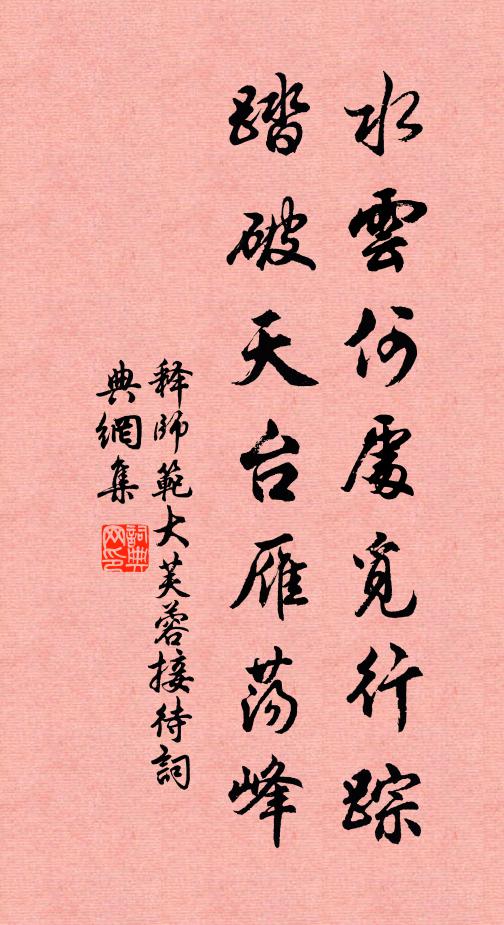 水雲何處覓行踪
踏破天台雁荡峰
释師範大芙蓉接待詞
典網集
詞典
网印